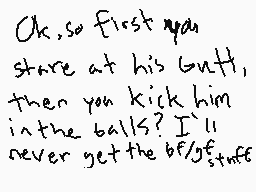 Ok, so first you
stare at his butt,
then you kick him
in the balls? I'll
never get the bf/gf stuff